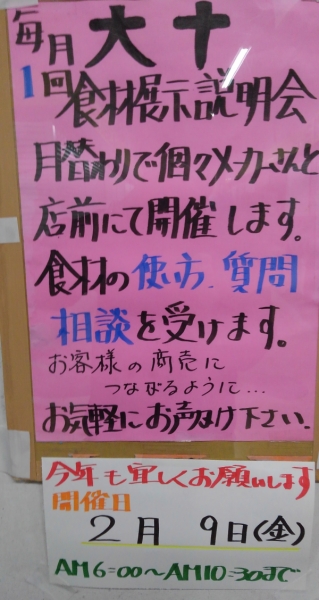 毎月 大 十
1回食材展示説明会
月替わりで個々メーカーさんと
店前にて開催します。
食材の使い方、質問
相談を受けます。
お客様の商売に
つながるように…
お気軽にお声がけ下さい。
今年も宜しくお願いします
開催日
2月 9日(金)
AM6:00〜AM10:30まで